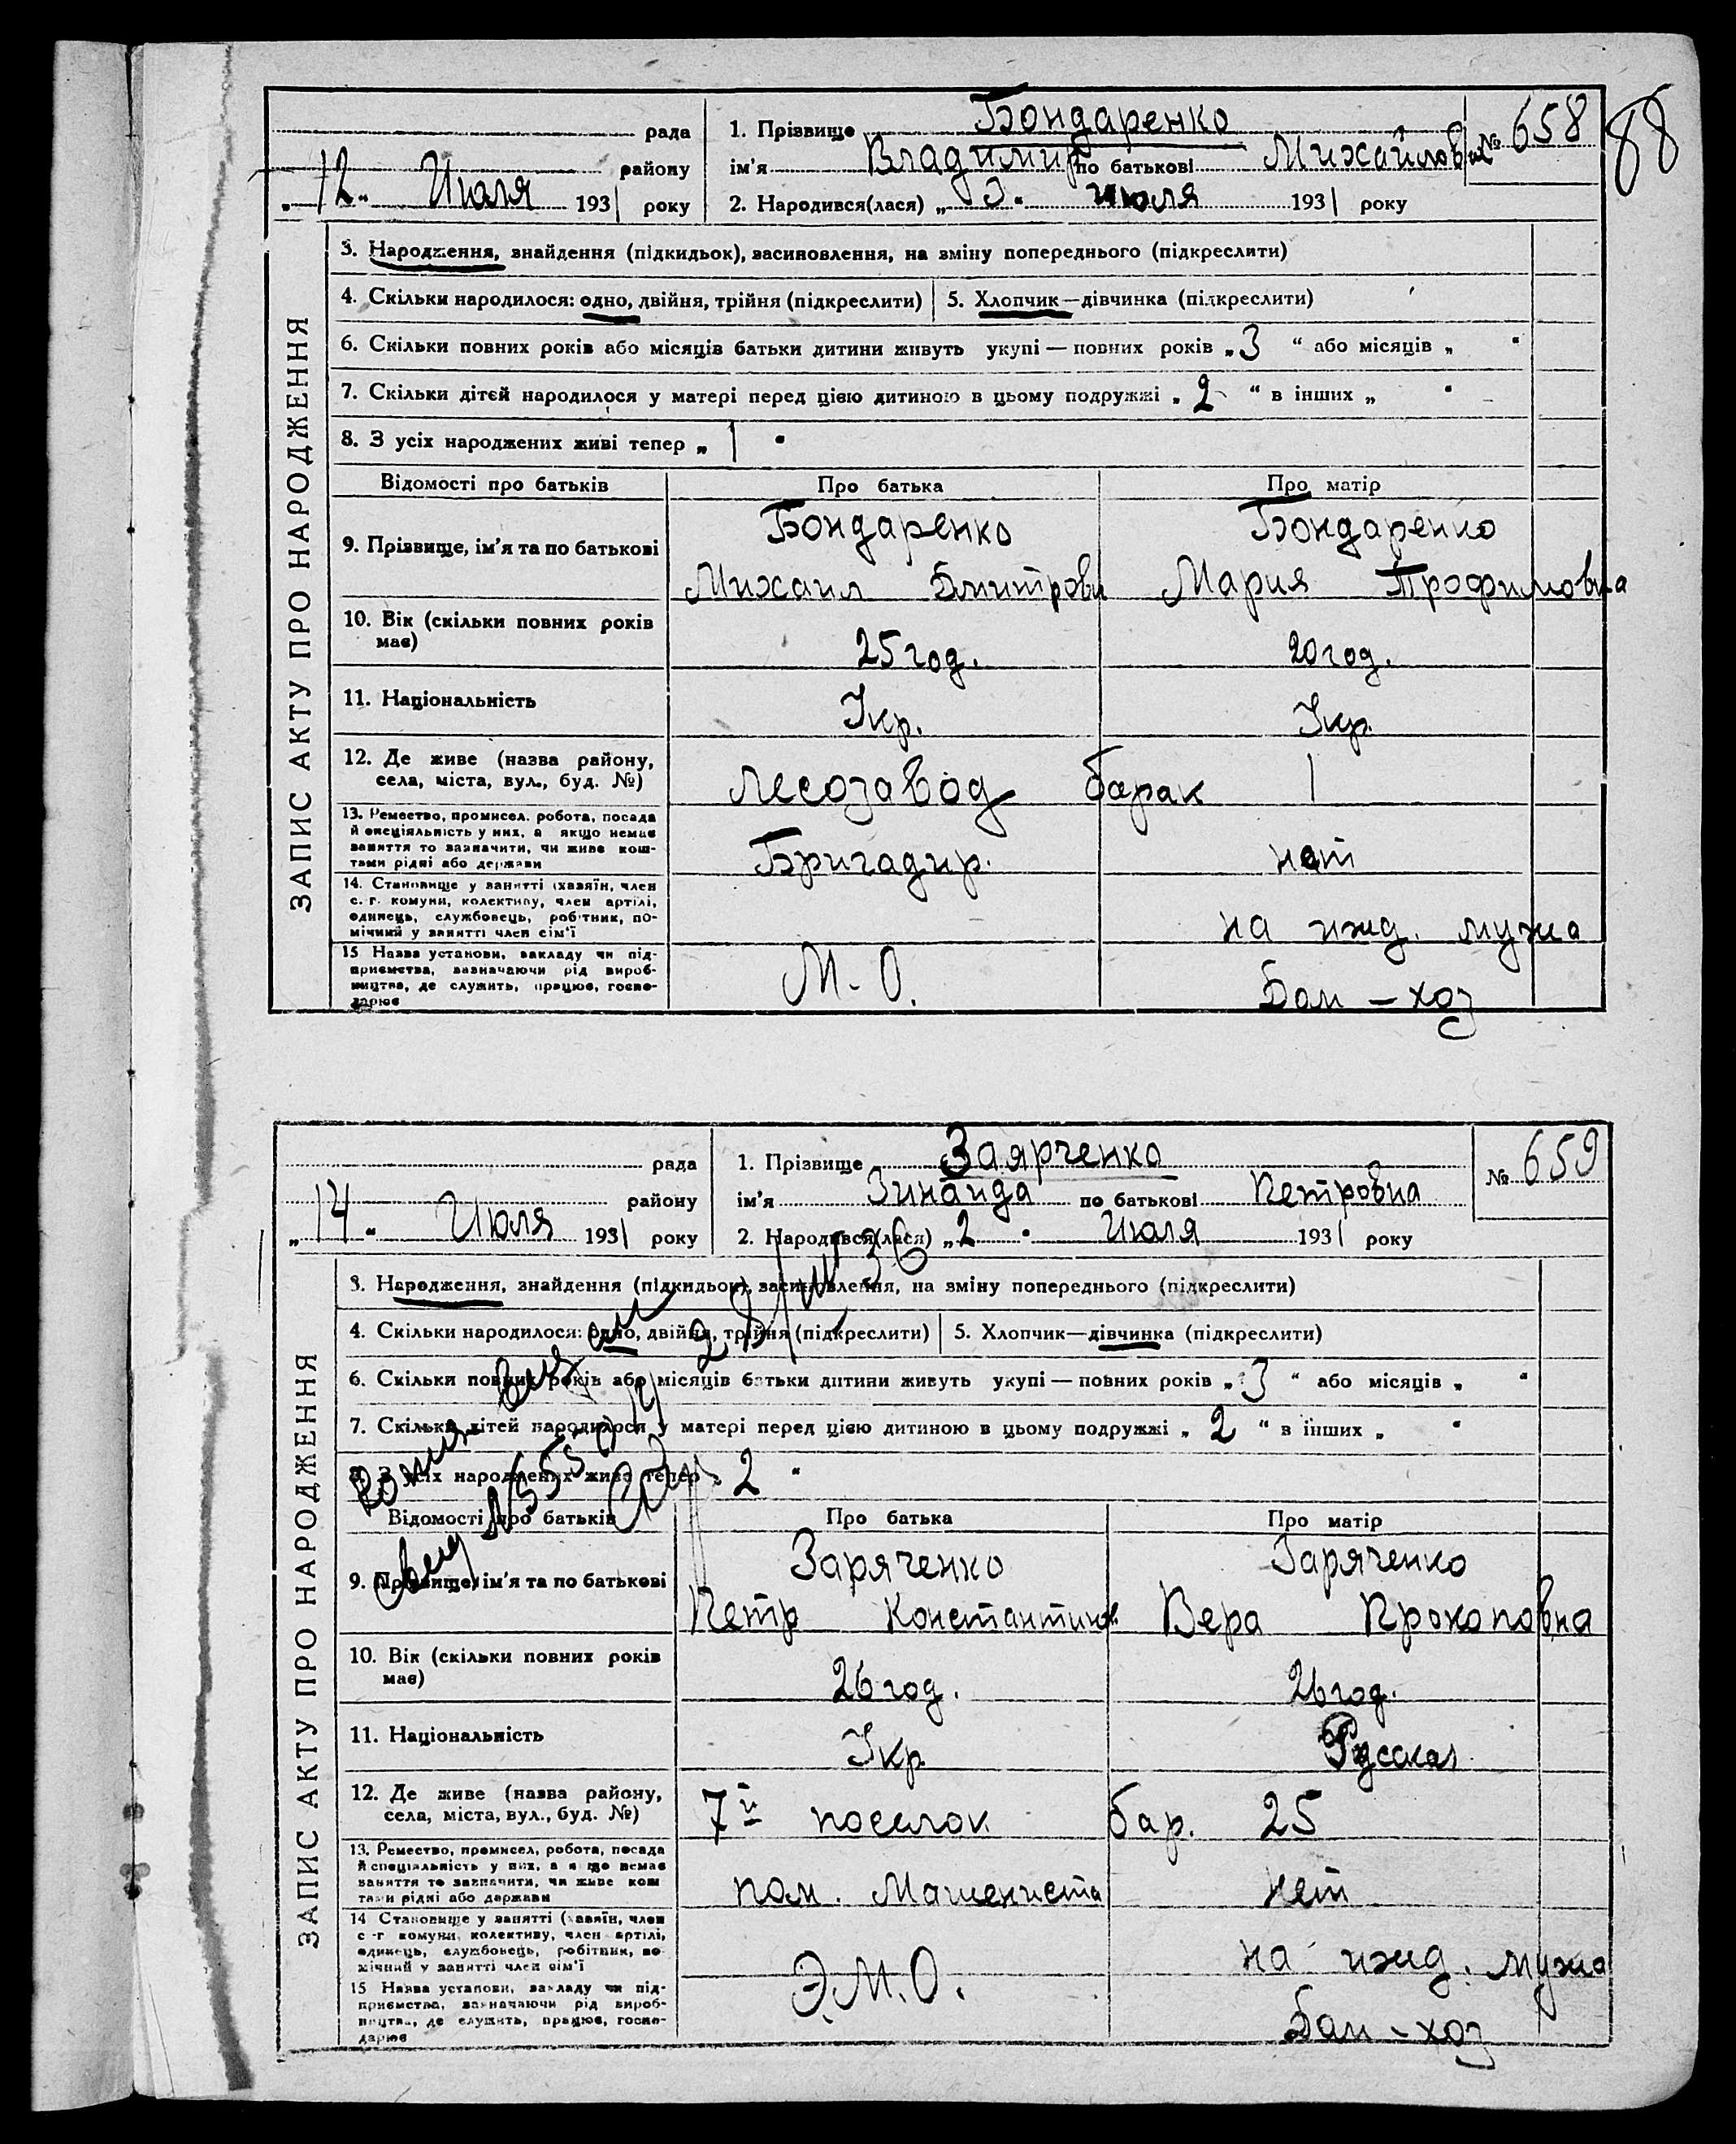 88
рада
1. Прізвище Бондаренко
№ 658
району
ім'я Владимир по батькові Михайлович
„12“ Июля 1931 року
2. Народився(лася) „3“ июля 1931 року
ЗАПИС АКТУ ПРО НАРОДЖЕННЯ
3. Народження, знайдення (підкидьок), засиновлення, на зміну попереднього (підкреслити)
4. Скільки народилося: одно, двійня, трійня (підкреслити)
5. Хлопчик—дівчинка (підкреслити)
6. Скільки повних років або місяців батьки дитини живуть укупі — повних років „3“ або місяців „ “
7. Скільки дітей народилося у матері перед цією дитиною в цьому подружжі „2“ в інших „ “
8. З усіх народжених живі тепер „1“
Відомості про батьків
Про батька
Про матір
9. Прізвище, ім'я та по батькові
Бондаренко
Михаил Дмитрови
Бондаренко
Мария Трофимовна
10. Вік (скільки повних років має)
25 год.
20 год.
11. Національність
Укр.
Укр.
12. Де живе (назва району,
села, міста, вул., буд. №)
Лесозавод барак 1
13. Ремество, промисел, робота, посада
й спеціяльність у них, а якщо немає
заняття то зазначити, чи живе кош-
тами рідні або держави
Бригадир.
нет
14. Становище у занятті (хазяїн, член
с.-г. комуни, колективу, член артілі,
одинець, службовець, робітник, по-
мічний у занятті член сім'ї
на ижд. мужа
15 Назва установи, закладу чи під-
приємства, зазначаючи рід вироб-
ництва, де служить, працює, госпо-
дарює
М. О.
Дом – хоз
рада
1. Прізвище Заярченко
№ 659
району
ім'я Зинаида по батькові Петровна
„14“ Июля 1931 року
2. Народився(лася) „2“ Июля 1931 року
ЗАПИС АКТУ ПРО НАРОДЖЕННЯ
3. Народження, знайдення (підкидьок), засиновлення, на зміну попереднього (підкреслити)
4. Скільки народилося: одно, двійня, трійня (підкреслити)
5. Хлопчик—дівчинка (підкреслити)
6. Скільки повних років або місяців батьки дитини живуть укупі — повних років „3“ або місяців „ “
7. Скільки дітей народилося у матері перед цією дитиною в цьому подружжі „2“ в інших „ “
8. З усіх народжених живі тепер „2“
Відомості про батьків
Про батька
Про матір
9. Прізвище, ім'я та по батькові
Заряченко
Петр Константинов
Заряченко
Вера Прокоповна
10. Вік (скільки повних років має)
26 год.
26 год.
11. Національність
Укр
Русская
12. Де живе (назва району,
села, міста, вул., буд. №)
7й поселок бар. 25
13. Ремество, промисел, робота, посада
й спеціяльність у них, а якщо немає
заняття то зазначити, чи живе кош
тами рідні або держави
пом. Машениста
нет
14 Становище у занятті (хазяїн, член
с-г комуни, колективу, член артілі,
одинець, службовець, робітник, по
мічний у занятті член сім'ї
на ижд. мужа
15 Назва установи, закладу чи під-
приємства, зазначаючи рід вироб-
ництва, де служить, працює, госпо-
дарює
Э.М.О.
Дом – хоз